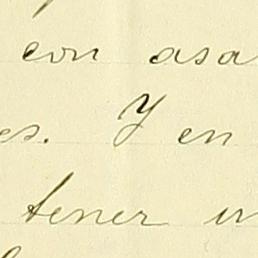 con asa
es. Y en
tener un